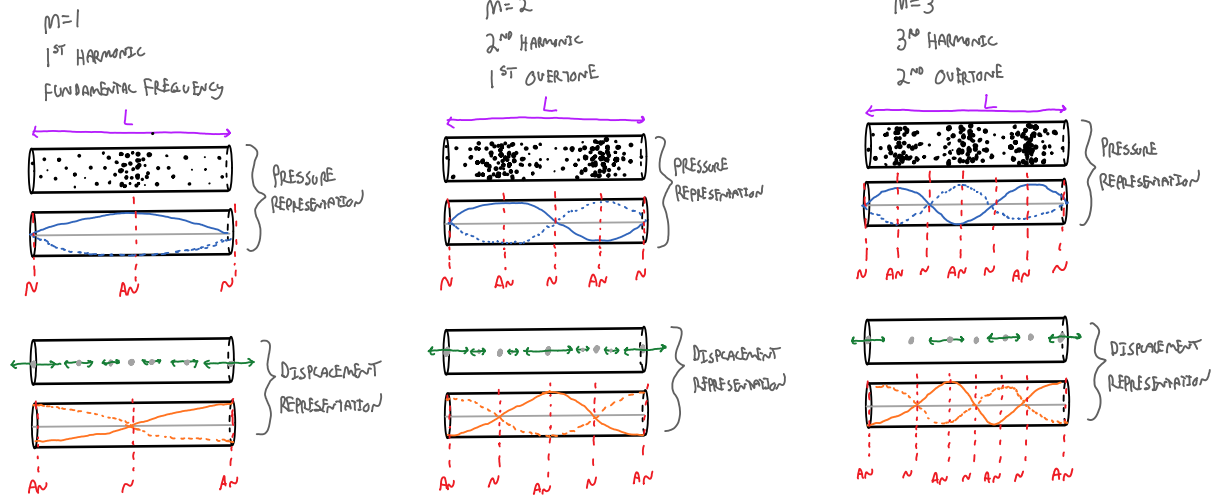 m=1
1ST HARMONIC
FUNDAMENTAL FREQUENCY
L
PRESSURE
REPRESENTATION
N AN N
DISPLACEMENT
REPRESENTATION
AN N AN
m=2
2ND HARMONIC
1ST OVERTONE
L
PRESSURE
REPRESENTATION
N AN N AN N
DISPLACEMENT
REPRESENTATION
AN N AN N AN
m=3
3RD HARMONIC
2ND OVERTONE
L
PRESSURE
REPRESENTATION
N AN N AN N AN N
DISPLACEMENT
REPRESENTATION
AN N AN N AN N AN